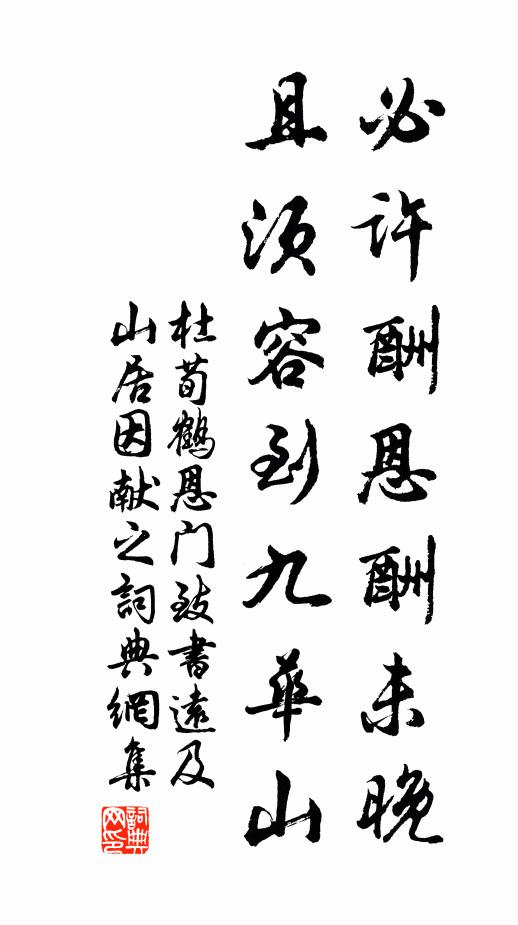 必许酬恩酬未晚
且须容到九华山
杜荀鹤恩门致书远及
山居因献之詞典網集
詞典網印